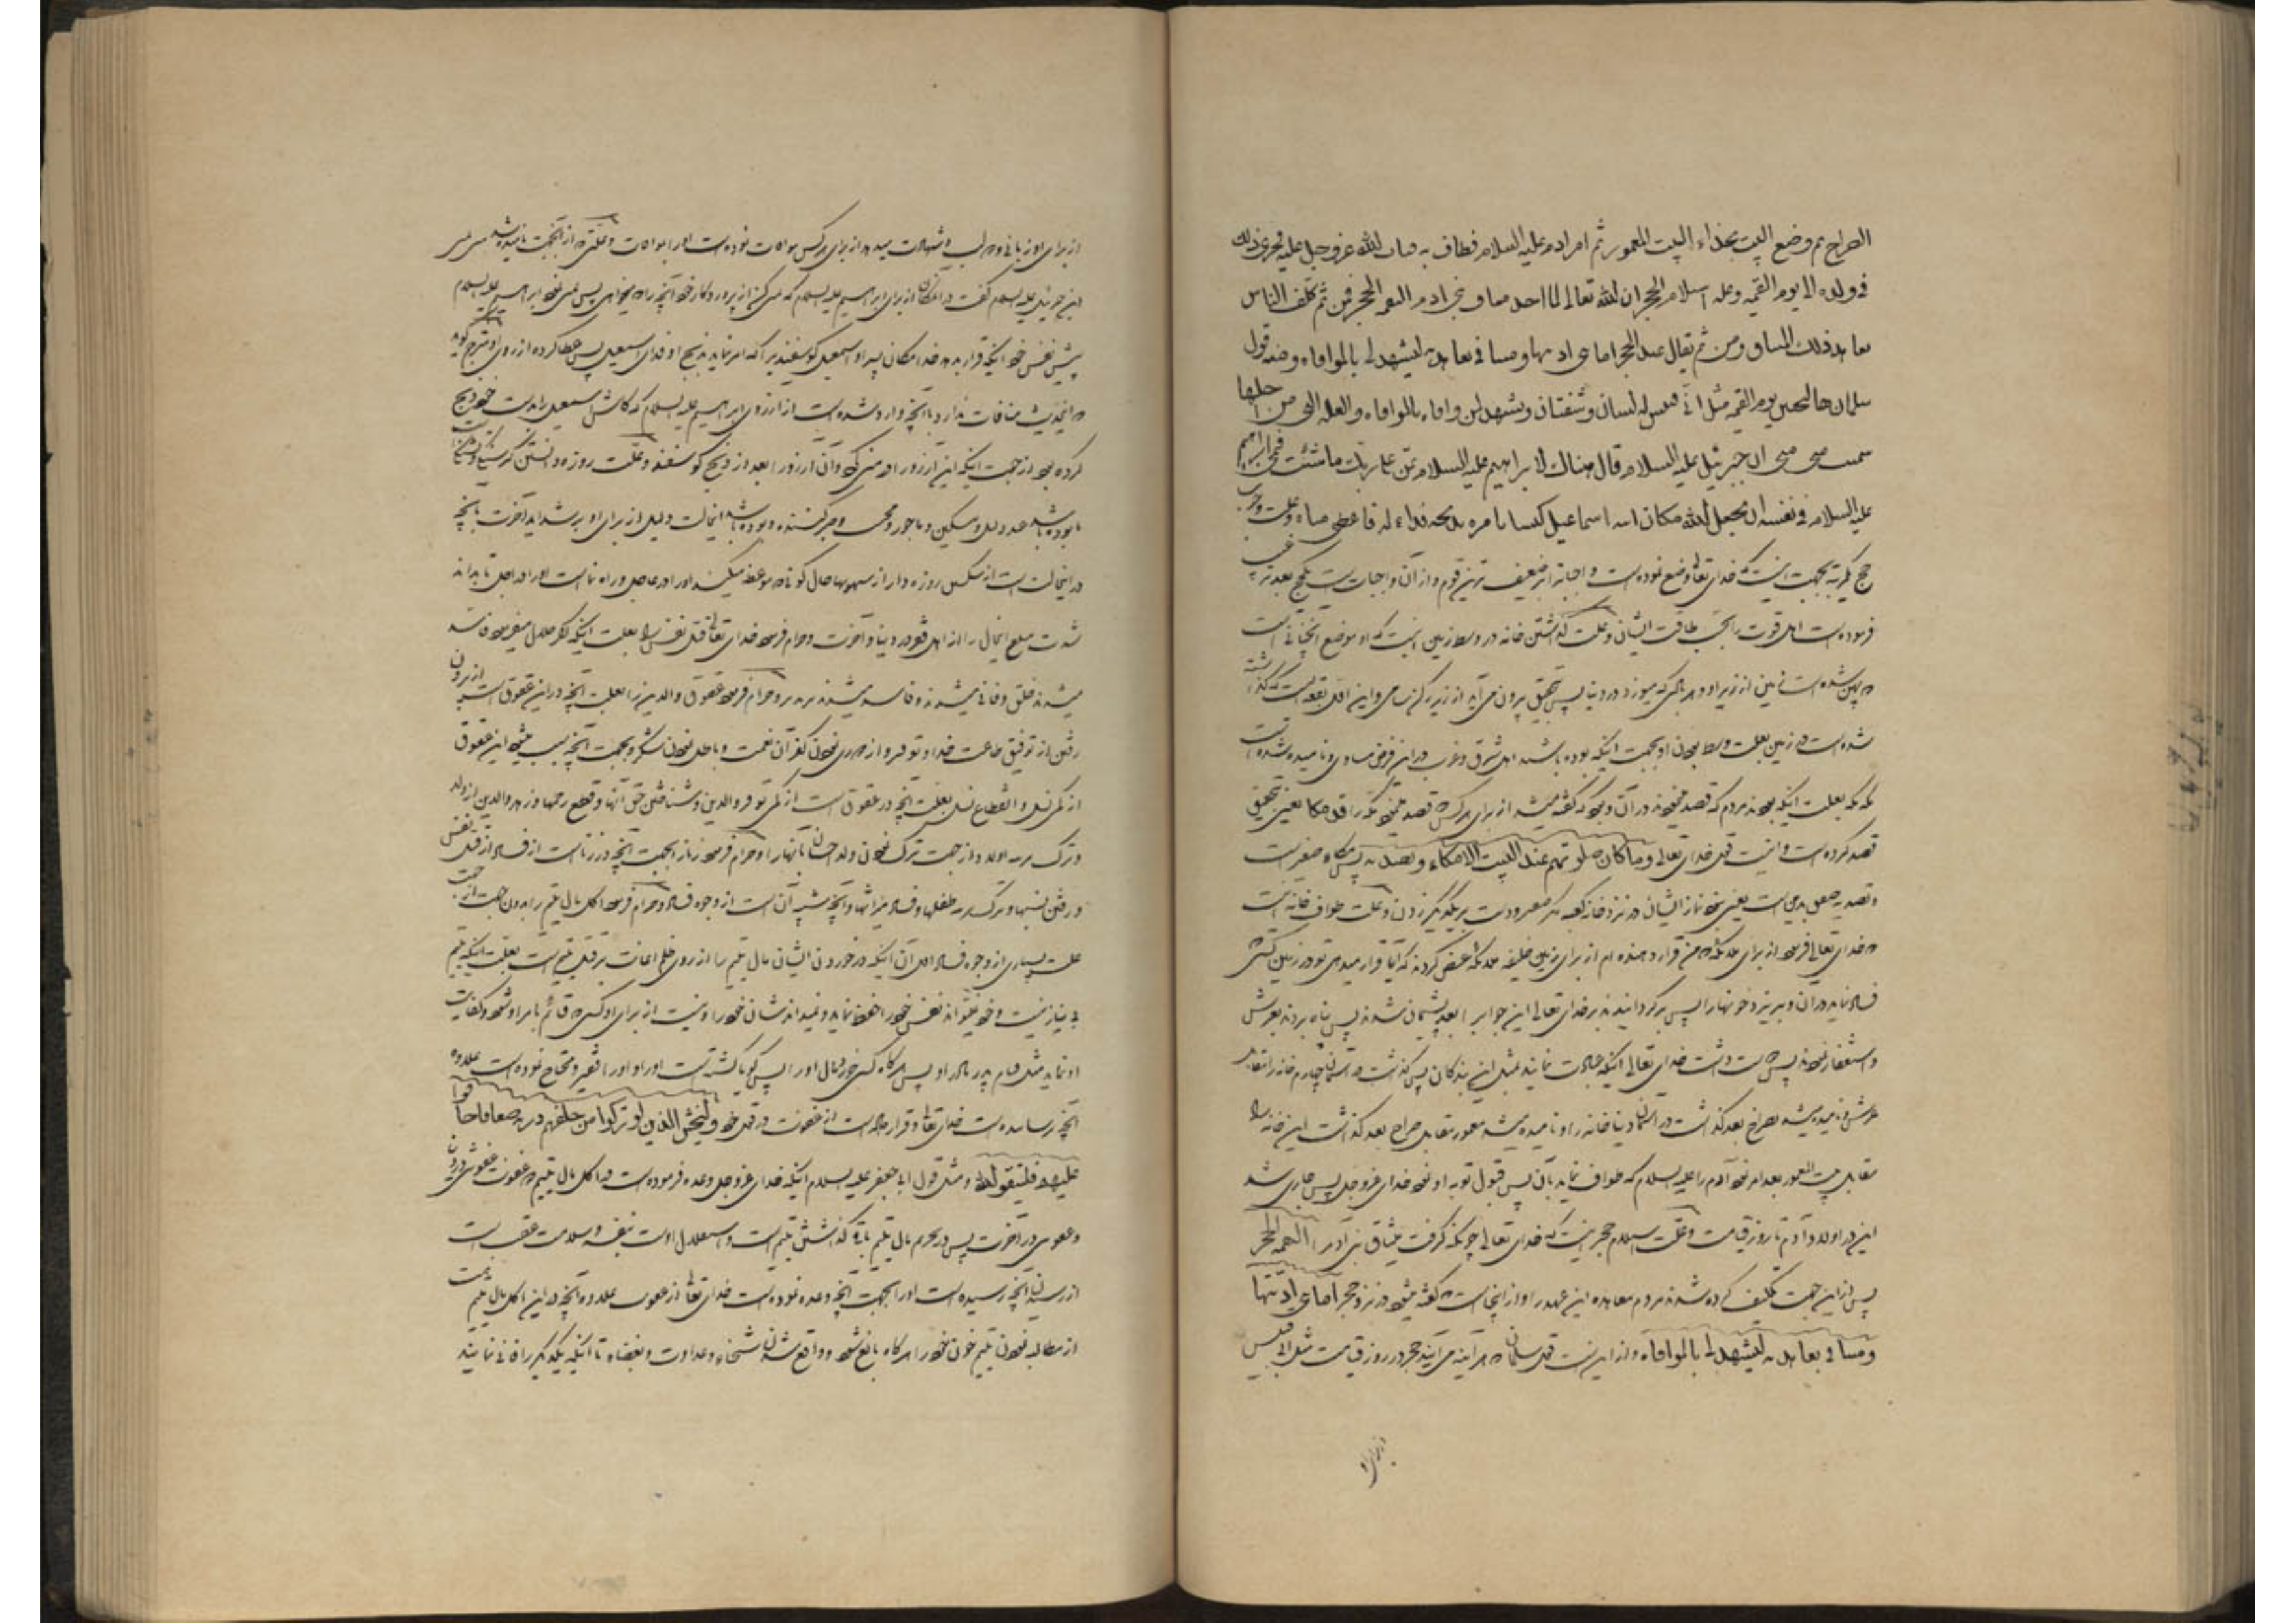 الضراح ثم وضع البیت بحذاء البیت المعمور ثم امر ادم علیه السلام فطاف به فتاب الله عزوجل علیه فجری ذلك
فی ولده الی یوم القیمه وعله استلام الحجر ان الله تعالی لما اخذ میثاق بنی ادم التقمه الحجر فمن ثم تکلف الناس
تعاهد ذلك المیثاق ومن ثم یقال عند الحجر امانتی ادیتها ومیثاقی تعاهدته لیشهد لی بالموافاه ومنه قول
سلمان لیجیئن الحجر یوم القیمه مثل ابی قبیس له لسان وشفتان ویشهد لمن وافاه بالموافاه والعله التی من اجلها
سمیت منی منی ان جبرئیل علیه السلام قال هناك لابراهیم علیه السلام تمن علی ربك ما شئت فتمنی ابراهیم
علیه السلام فی نفسه ان یجعل الله مکان ابنه اسماعیل کبشا یامره بذبحه فداء له فاعطی مناه وعلت وجوب
حج یکمرتبه بجهت اینست که خدای تعالی وضع نموده است واجبات را بر ضعیف ترین قوم و از آن واجبات است حج بعد ترغیب
فرموده است اهل قوت را بحسب طاقت ایشان وعلت گذاشتن خانه در وسط زمین اینست که او موضع آنچنانی است
که پهن شده است زمین از زیر او و هر بادی که میوزد در دنیا پس بتحقیق بیرون می‌آید از زیر رکن شامی و این اول بقعه ایست که گذاشته
شده است در زمین بعلت وسط بودن او بجهت اینکه بوده باشد اهل شرق وغرب در این فرض مساوی و نامیده شده است
مکه مکه بعلت اینکه بودند مردم که قصد مینمودند در آن و بود که گفته میشد از برای هر کس قصد مینمود مکه را قد مکا یعنی بتحقیق
قصد کرده است و اینست قول خدای تعالی وما کان صلوتهم عند البیت الا مکاء وتصدیه پس مکاء صفیر است
و تصدیه صفق یدین است یعنی نبود نماز ایشان در نزد خانه کعبه مگر صفیر و دست بر یکدیگر زدن وعلت طواف خانه اینست
که خدای تعالی فرمود از برای ملائکه که من قرار دهنده ام از برای زمین خلیفه ملائکه عرض کردند که آیا قرار میدهی تو در زمین کسی
فساد نماید در آن و بریزد خونها را پس برگردانیدند بر خدای تعالی این جواب را بعد پشیمان شدند پس پناه بردند بعرش
و استغفار نمودند پس دوست داشت خدای تعالی اینکه عبادت نمایند بمثل این بندگان پس گذاشت در آسمان چهارم خانه را مقابل
عرش و نامیده میشد بضراح بعد گذاشت در آسمان دنیا خانه را و نامیده میشد معمور مقابل ضراح بعد گذاشت این خانه را
مقابل بیت المعمور بعد امر نمود آدم را علیه السلام که طواف نماید بآن پس قبول توبه او نمود خدای عزوجل پس جاری شد
این در اولاد آدم تا روز قیامت وعلت استلام حجر اینست که خدای تعالی چونکه گرفت میثاق بنی آدم را التقمه الحجر
پس از این جهت تکلیف کرده شدند مردم معاهده این عهد را و از اینجاست که گفته میشود در نزد حجر امانتی ادیتها
ومیثاقی تعاهدته لیشهد لی بالموافاه و از این است قول سلمان که هر آینه می‌آید حجر در روز قیامت مثل ابی قبیس
از برای او
از برای او زبانی و دو لب و شهادت میدهد از برای هر کس موافات نموده است او را بموافات و علتی که از آنجهت نامیده شد منی منی
این جبرئیل علیه السلام گفت در آنمکان از برای ابراهیم علیه السلام که تمنی کن از پروردگار خود آنچه را که میخواهی پس تمنی نمود ابراهیم علیه السلام
پیش نفس خود اینکه قرار بدهد خدا مکان پسر او اسمعیل گوسفندی را که امر نماید بذبح او فدای اسمعیل پس عطا کرده آرزوی او مترجم گوید
که اینحدیث منافات ندارد با آنچه وارد شده است از آرزوی ابراهیم علیه السلام که کاش اسمعیل را بدست خود ذبح
کرده بود از جهت اینکه این آرزو را در منی کرد و آن آرزو را بعد از ذبح گوسفند وعلت روزه دانستن گرسنگی وتشنگی
تا بوده باشد عبد ذلیل و مسکین و ماجور و محتسب و صبر کننده و بوده باشد اینحالت دلیل از برای او بر شداید آخرت با آنچه
در اینحالت است از شکستن روزه دار از شهوتها حال کونه موعظه میکند او را در عاجل و راه نما است او را در آجل تا بداند
شدت مبلغ اینحال را از اهل فقر در دنیا و آخرت وحرام فرمود خدای تعالی قتل نفس را بعلت اینکه اگر حلال میفرمود فاسد
میشدند خلق و فانی میشدند و فاسد میشد تدبیر وحرام فرمود عقوق والدین را بعلت آنچه در این عقوق است از بیرون
رفتن از توفیق طاعت خدا و توقیر و از دوری نمودن کفران نعمت و باطل نمودن شکر و بجهت آنچه سبب میشود این عقوق
از کمی نسل و انقطاع نسل بعلت آنچه در عقوق است از کمی توقیر والدین و شناختن حق آنها و قطع رحمها و زهد والدین از ولد
وترک تربیت اولاد از جهت ترک نمودن ولد احسان بآنها را وحرام فرمود زنا را بجهت آنچه در زنا است از فساد از قتل نفس
و رفتن نسبها وترک تربیت طفلها و فساد میراثها و آنچه شبیه آن است از وجوه فساد وحرام فرمود اکل مال یتیم را بدون حق از جهت
علت بسیاری از وجوه فساد اول آن اینکه در خوردن ایشان مال یتیم را از روی ظلم اعانت بر قتل یتیم است بعلت اینکه یتیم
بی نیاز نیست و خود نمیتواند نفس خود را حفظ نماید و نمیداند شان خود را و نیست از برای او کسی که قائم بامر او شود و کفایت
او نماید مثل قیام پدر و مادر او پس هرگاه کسی خورد مال او را پس گویا کشته است او را و او را فقیر و محتاج نموده است علاوه
آنچه ترسانیده است خدای تعالی و قرار داده است از عقوبت در قول خود ولیخش الذین لو ترکوا من خلفهم ذریه ضعافا خافوا
علیهم فلیتقوا الله و مثل قول ابی جعفر علیه السلام اینکه خدای عزوجل وعده فرموده است در اکل مال یتیم دو عقوبت عقوبتی در دنیا
و عقوبتی در آخرت پس در تحریم مال یتیم باقی گذاشتن یتیم است و استقلال اوست بنفسه و سلامت عقب است
از رسیدن آنچه رسیده است او را بجهت آنچه وعده نموده است خدای تعالی از عقوبت علاوه آنچه در این اکل مال یتیم است
از مطالبه نمودن یتیم خون خود را هرگاه بالغ شود و واقع شدن شحناء و عداوت و بغضاء تا آنکه یکدیگر را فانی نمایند